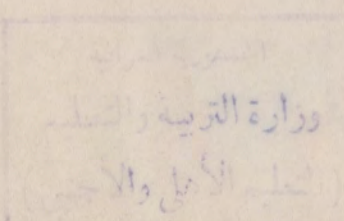 وزارة التربية والتعليم
التعليم الأهلي والأجنبي